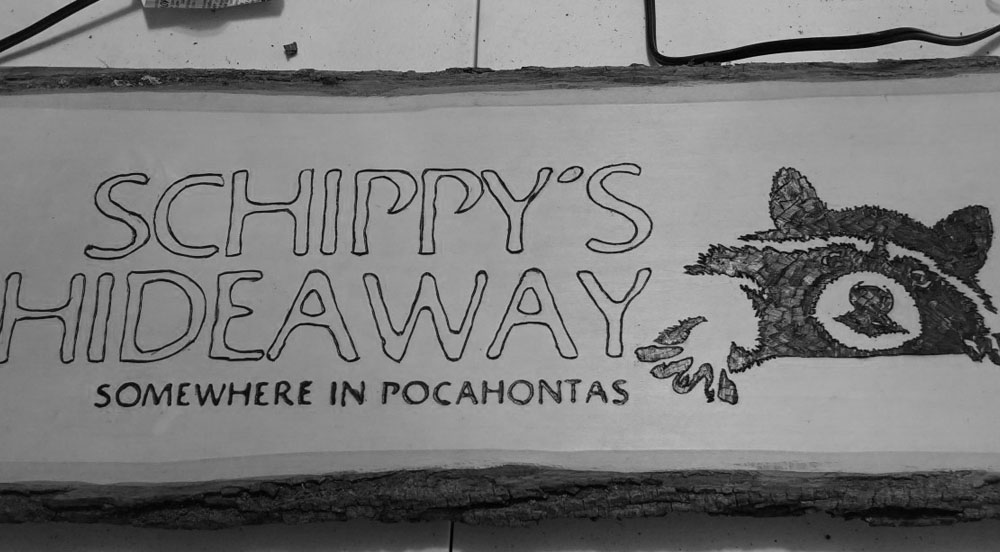 SCHIPPY'S
HIDEAWAY
SOMEWHERE IN POCAHONTAS